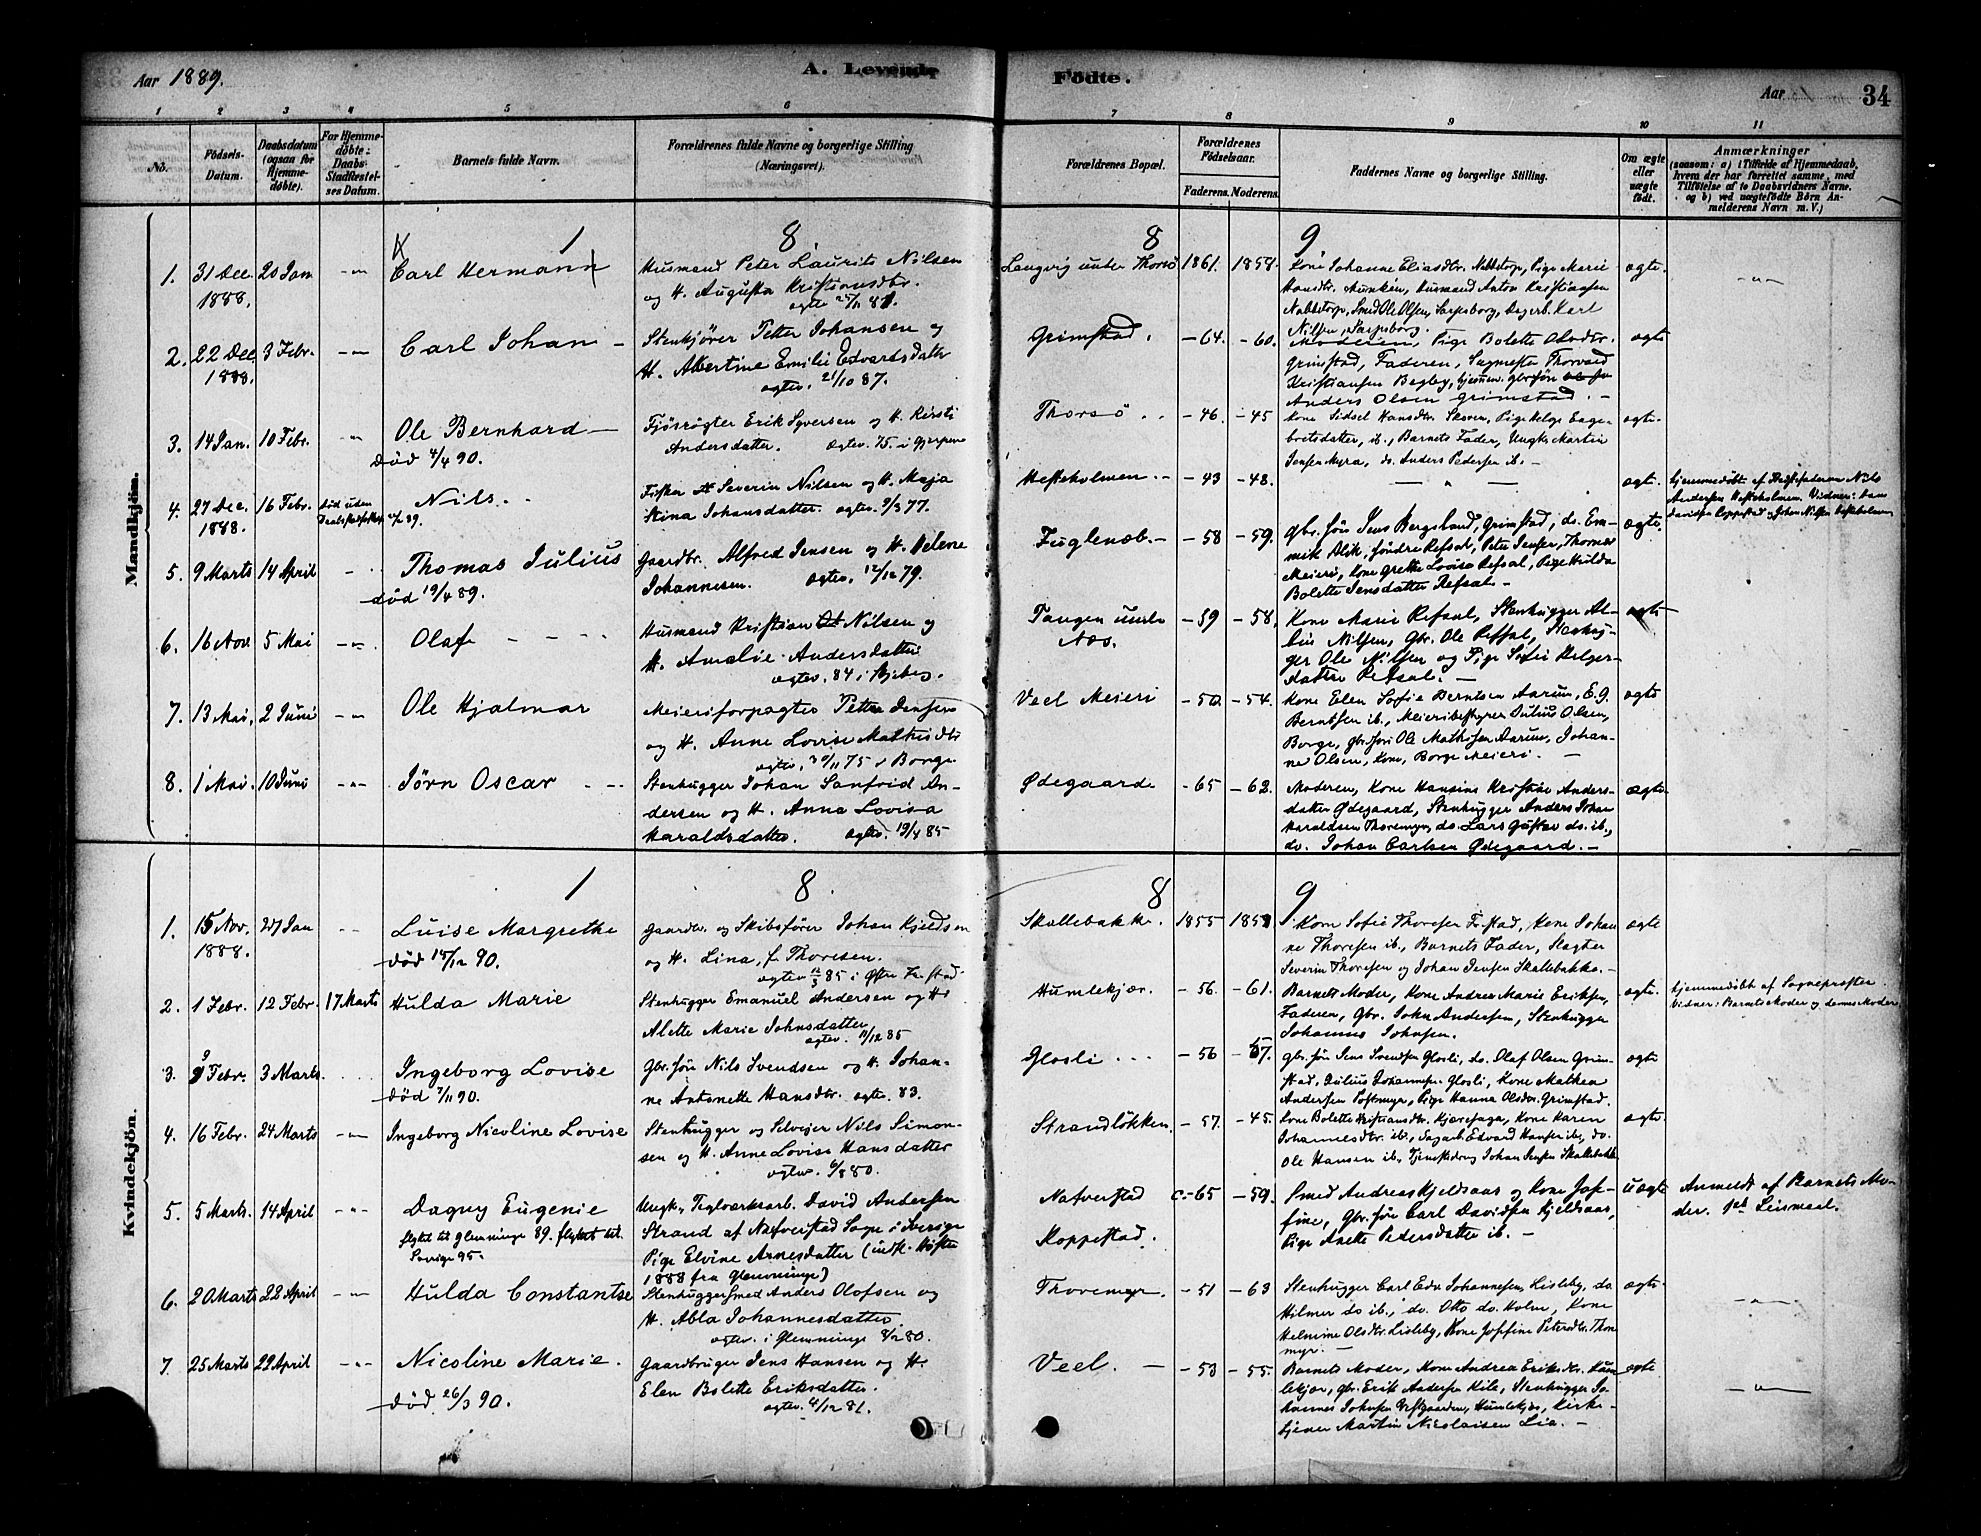 Aar 1889.
A. Levende Fødte.
Aar
34
1 2 3 4 5 6 7 8 9 10 11
No.
Fødsels-Datum.
Daabsdatum (ogsaa for Hjemme-døbte).
For Hjemme-døbte: Daabs-Stadfæstel-ses Datum.
Barnets fulde Navn.
Forældrenes fulde Navne og borgerlige Stilling (Næringsvei).
Forældrenes Bopæl.
Forældrenes Fødselsaar.
Faderens. Moderens.
Faddernes Navne og borgerlige Stilling.
Om ægte eller uægte født.
Anmærkninger
(saasom: a) i Tilfælde af Hjemmedaab,
hvem der har forrettet samme, med
Tilføielse af to Daabsvidners Navne.
og b) ved uægtefødte Børn An-
melderens Navn m. V.)
Mandkjøn.
1 8 8 9
1. 31 Dec. 1888. 20 Jan Carl Hermann
Husmand Peter Laurits Nilsen
og H. Augusta Kristiansdtr.
Langvig under Thorsø 1861. 1858.
Kone Johanne Eliasdtr. Nabbetorp, Pige Marie
Hansdtr. Munken, Husmand Anton Kristiansen
Nabbetorp, Smed Ole Olsen, Sarpsborg, Dagarb. Karl
Nilsen, Sarpsborg.
ægte.
2. 22 Dec. 1888. 3 Febr. Carl Johan
Stenkjører Petter Johansen og
H. Albertine Emilie Edvardsdatter
ægtev. 21/10 87.
Grimstad. - 64. - 60.
Moderen, Pige Bolette Olsdtr.
Grimstad, Faderen, Sagmester Thorvald
Kristiansen Begby, hjemmev. gbrsøn
Anders Olsen Grimstad.
ægte
3. 14 Jan. 10 Febr. Ole Bernhard
død 4/4 90.
Fjøsrøgter Erik Syversen og H. Kirsti
Andersdatter. ægtev. 75. i Gjerpen
Thorsø - 46. - 45
Kone Sidsel Hansdtr. Skoven, Pige Helge Enge-
bretsdatter, ib., Barnets Fader, Ungk. Martin
Jensen Myra, do. Anders Pedersen ib.
ægte.
4. 27 Dec. 1888. 16 Febr. død uden Daabsstadfæst. Nils.
Fisker Severin Nilsen og H. Maja
Stina Johansdatter. ægtev. 9/3 77.
Hesteholmen - 43 - 48.
ægte.
Hjemmedøbt af Bedstefaderen Nils
Andersen Hesteholmen. Vidner: Lars
Davidsen Koppestad og Johan Nilsen Hesteholmen
5. 9 Marts 14 April Thomas Julius
død 19/4 89.
Gaardbr. Alfred Jensen og H. Helene
Johannesen. ægtev. 12/12 79.
Fuglenæb. - 58 - 59.
Gbr. Søn Jens Bergsland, Grimstad, do. Em-
rik Alik, søndre Refsal, Peter Jensen, Thorsø
Meieri, Kone Grethe Lovise Refsal, Pige Hulda
Bolette Jensdatter Refsal.
ægte.
6. 16 Nov. 5 Mai Olaf
Husmand Kristian Nilsen og
H. Amalie Andersdatter
ægtev. 84 i Skjeberg.
Tangen under Næs. - 59 - 58.
Kone Marie Refsal, Stenhugger Al-
bin Nilsen, Gbr. Ole Refsal, Stenhug-
ger Ole Nilsen og Pige Sofie Helger-
datter Refsal.
ægte
7. 13 Mai, 2 Juni Ole Hjalmar
Meieriforpagter Petter Jensen
og H. Anne Lovise Mathisdtr
ægtev. 30/11 75 i Borge
Veel Meieri - 50. - 54.
Kone Elen Sofie Berntsen Aarum, E. G.
Berntsen ib., Meieribestyrer Julius Olsen,
Borge, gbrsøn Ole Mathisen Aarum, Johan-
ne Olsen, Kone, Borge Meieri.
ægte
8. 1 Mai. 10 Juni Jørn Oscar
Stenhugger Johan Sanfrid An-
dersen og H. Anna Lovisa
Haraldsdatter. ægtev. 19/4 85
Ødegaard - 65 - 62.
Moderen, Kone Hansine Kristine Anders-
datter Ødegaard, Stenhugger Anders Johan
Haraldsen Thoremyr, do. Lars Gustav do. ib.,
do. Johan Carlsen Ødegaard.
ægte
Kvindekjøn.
1 8 8 9
1. 15 Nov. 1888. 27 Jan Luise Margrethe
død 15/12 90.
Gaardbr. og Skibsfører Johan Kjeldsen
og H. Lina, f. Thoresen.
ægtev. 12/3 85 i Østre Fr.stad.
Skallebakke. 1855
Kone Sofie Thoresen Fr.stad, Kone Johan
ne Thoresen ib., Barnets Fader, Slagter
Severin Thoresen og Johan Jensen Skallebakke.
ægte
2. 1 Febr. 12 Febr. 17 Marts Hulda Marie
Stenhugger Emanuel Andersen og H.
Alette Marie Johnsdatter
ægtev. 11/12 85
Humlekjær. - 56. - 61.
Barnets Moder, Kone Andrea Marie Eriksen,
Faderen, Gbr. John Andersen, Stenhugger
Johannes Johnsen.
ægte.
Hjemmedøbt af Sognepresten.
Vidner: Barnets Moder og dennes Moder
3. 9 Febr. 3 Marts. Ingeborg Lovise
død 7/11 90.
Gbr. Søn Nils Svendsen og H. Johan-
ne Antonette Hansdtr. ægtev. 83.
Glosli - 56 - 57.
Gbr. Søn Jens Svendsen Glosli, do. Olaf Olsen Grim-
stad, Julius Johannesen Glosli, Kone Mathea
Andersen Postmyr, Pige Hanna Olsdtr. Grimstad.
ægte
4. 16 Febr. 24 Marts Ingeborg Nicoline Lovise
Stenhugger og Selveier Nils Simon-
sen og H. Anne Lovise Hansdatter
ægtev. 6/8 80.
Strandløkken. - 57. - 45.
Kone Bolette Kristiansdtr. Kjærefaga, Kone Karen
Johannesdtr. ib., Dagarb. Edvard Hansen ib., do.
Ole Hansen ib., Tjenestedreng Johan Jensen Skallebakke
ægte.
5. 5 Marts. 14 April Dagny Eugenie
flyttet til Glemminge 89. flyttet til
Sverige 95.
Ungk. Teglværksarb. David Andersen
Strand af Nafverstad Sogn i Sverige
Pige Elvine Arnesdatter (indk. Høsten
1888 fra Glemminge)
Nafverstad
Koppestad.
c. - 65 - 59.
Smed Andreas Kjeldsaas og Kone Jos-
fine, Gbr. Søn Carl Davidsen Kjeldsaas,
Pige Anette Pedersdatter ib.
uægte
Anmeldt af Barnets Mo-
der. 1ste Leiermaal.
6. 20 Marts 22 April Hulda Constantse
Stenhuggersmed Anders Olofsen og
H. Abla Johannesdatter.
ægtev. i Glemminge 8/12 80.
Thoremyr. - 51 - 63
Stenhugger Carl Edv Johannesen, Lisleby, do
Hilmer do ib., do. Otto do. Holm, Kone
Helmine Olsdtr. Lisleby, Kone Josefine Petersdtr. Thore
myr.
ægte.
7. 25 Marts 22 April Nicoline Marie.
død 26/3 90.
Gaardbruger Jens Hansen og H.
Elen Bolette Eriksdatter.
ægtev. 4/12 81.
Veel. - 53 - 55.
Barnets Moder, Kone Andrea Eriksdtr. Hum-
lekjær, Gbr. Erik Andersen Kile, Stenhugger Jo-
hannes Johnsen Vestgaarden, Humlekjær, Kirke-
tjener Martin Nicolaisen Lie.
ægte